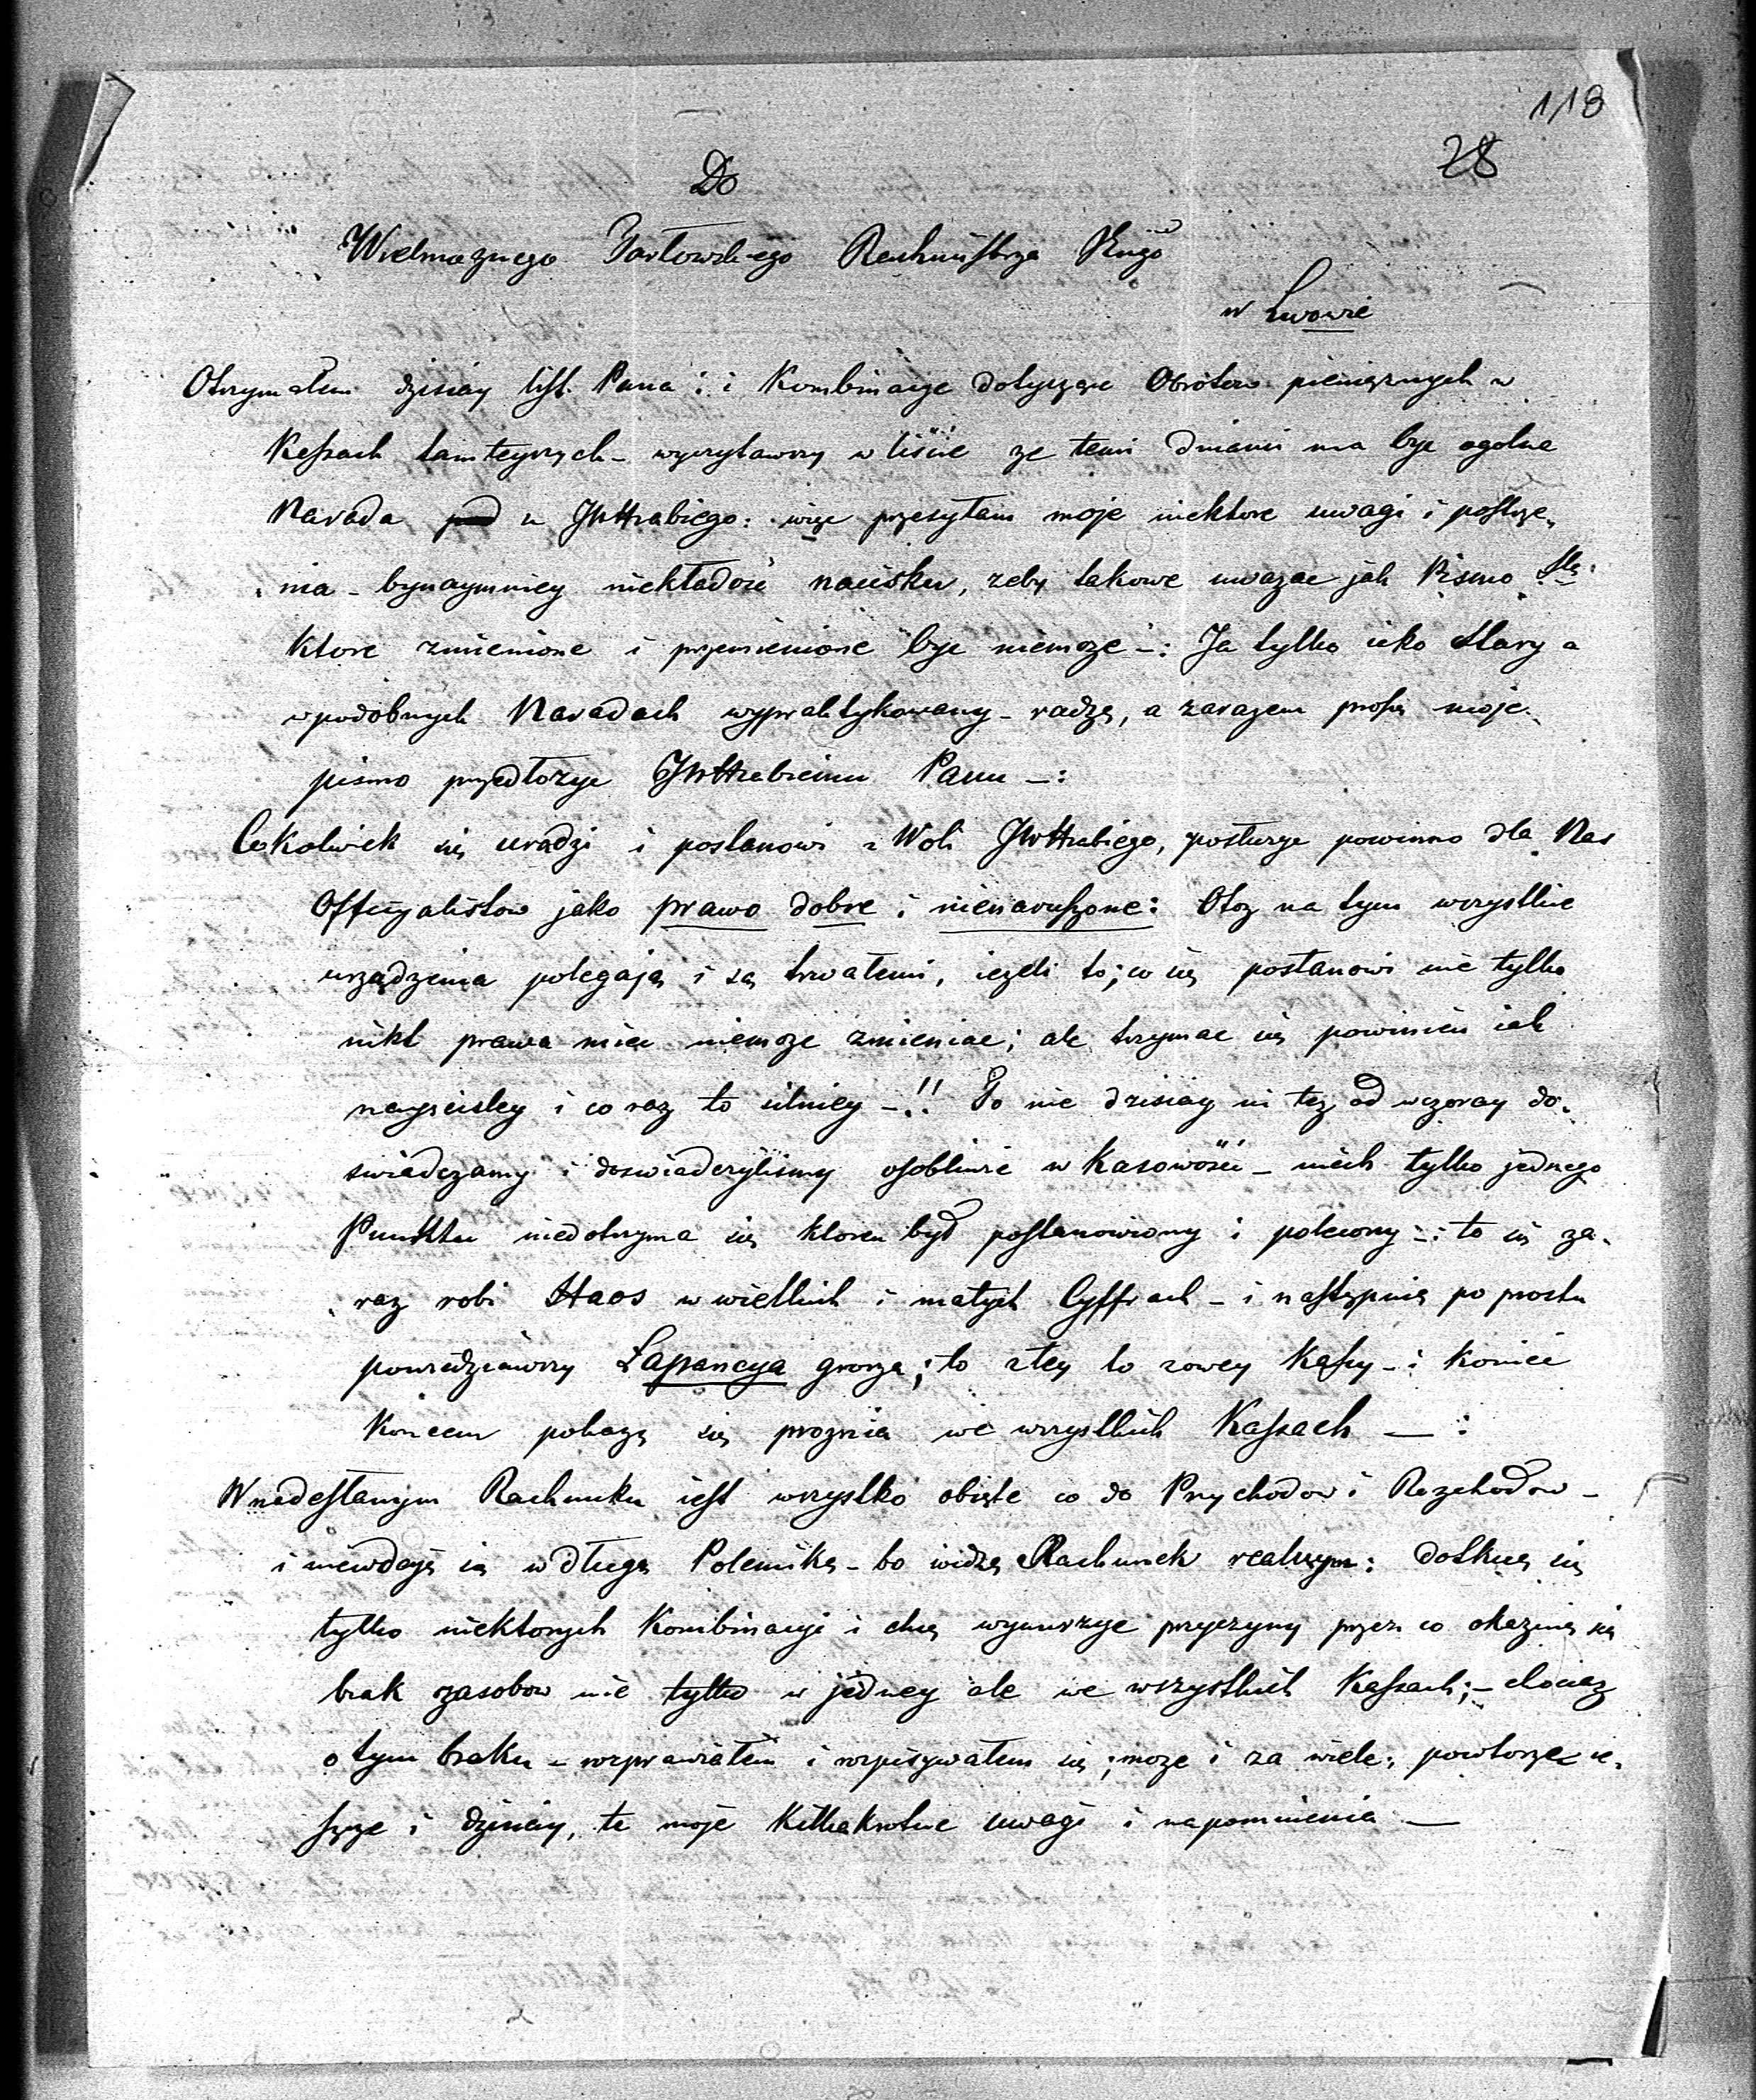 1/18
28
Do
Wielmoznego Pawłowskiego Rachmistrza
w Lwowie
Otrzymałem dzisiay list Pana i Kombinacye dotyczące Obrotow pienięznych w
Kassach tamteyszych – wyczytawszy w liście ze temi dniami ma byc ogolna
Narada u JWHrabiego: więc przesyłam moje niektore uwagi i postrze„
nia – bynaymniey niekładąć nacisku, zeby takowe uwazac jak Pismo Ste.
Ktore zmienione i przemienione byc niemoze –: Ja tylko jako Stary a
w podobnych Naradach wypraktykowany – radzę, a zarazem proszę moje
pismo przedłozyc JWHrabiemu Panu –:
Cokolwiek się uradzi i postanowi z Woli JWHrabiego, posłuzyc powinno dla Nas
Officyalistow jako prawo dobre i nienaruszone: Otoz na tym wszystkie
urządzenia polegają i są trwałemi, iezeli to; co się postanowi nie tylko
nikt prawa miec niemoze zmieniac; ale trzymac się powinien iak
nayscisley i co raz to silniey –!! To nie dzisiay ni tez od wczoray do„
swiadczamy i doswiadczylismy osobliwie w Kasowości – niech tylko jednego
Punktu niedotrzyma się ktoren był postanowiony i polecony –: to się za„
raz robi Haos w wielkich i małych Cyffrach – i następnie po prostu
powiedziawszy Łapancya grosza; to z tey to z owey Kassy – i koniec
Koncem pokazę się proznia we wszystkich Kassach — :
W nadesłanym Rachunku iest wszystko obięte co do Przychodow i Rozchodow –
i niewdaję się w długą Polemikę – bo widzę Rachunek realnym: dotknę się
tylko niektorych Kombinacyi i chcę wynurzyc przyczyny przez co okazuie się
brak zasobow nie tylko w jedney ale we wszystkich Kassach; – chociaz
o tym braku – rozprawiałem i rozpisywałem się; moze i za wiele; powtorzę ie„
szcze i dzisiay, te moje Kilkakrotne uwagi i napomnienia —